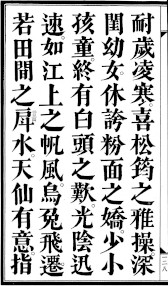 耐歲凌寒喜松筠之雅操深
閨幼女休誇粉面之嬌少小
孩童終有白頭之歎光陰迅
速如江上之帆風烏兔飛遷
若田間之戽水天仙有意指